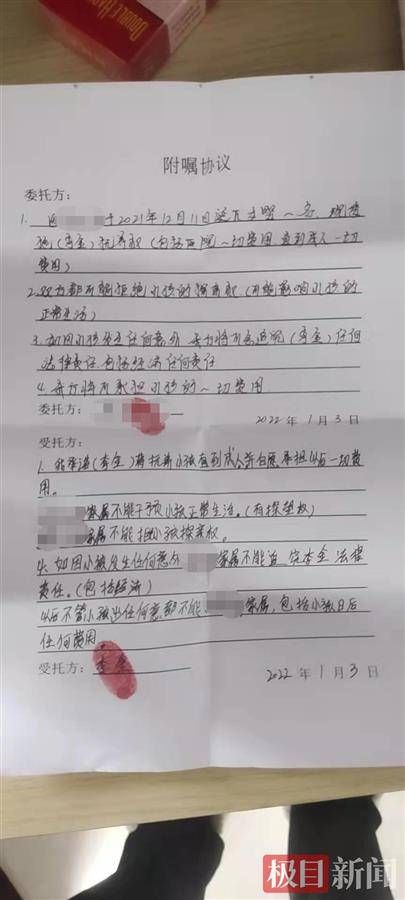 DOUBLE HA
附嘱协议
委托方:
1. 因 于2021年12月11日诞下 一名, 现
(李金)抚养权(包括医院一切费用直到
费用)
2.双方都不能拒绝小孩的探亲权(不能影响小孩的
正常生活)
3.如因小孩发生任何意外 女方将不会追究(李金)任何
法律责任 包括经济任何责任
4.女方将不承担小孩的一切费用
委托方:
2022年1月3日
受托方:
1. 我 (李金) 抚养小孩直到成人 自愿承担以后一切费
用。
家属不能干预小孩正常生活。(有探望权)
家属不能拒小孩探亲权。
4. 如因小孩发生任何意外 家属不能追究李金法律
责任。(包括经济)
以后不管小孩出任何意 都不能 家属,包括小孩日后
任何费用。
受托方: 李金
2022年1月3日
极目新闻